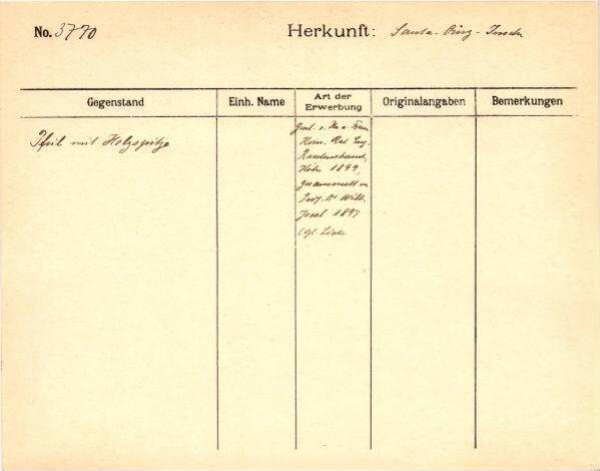 No. 3770
Herkunft: Santa-Cruz-Inseln
Gegenstand
Einh. Name
Art der Erwerbung
Originalangaben
Bemerkungen
Pfeil mit Holzspitze
Gesch. v. H. u. Frau
Kom. Rat Eug.
Rautenstrauch,
Köln 1899,
gesammelt v.
Prof. Dr Wilh.
Joest 1897